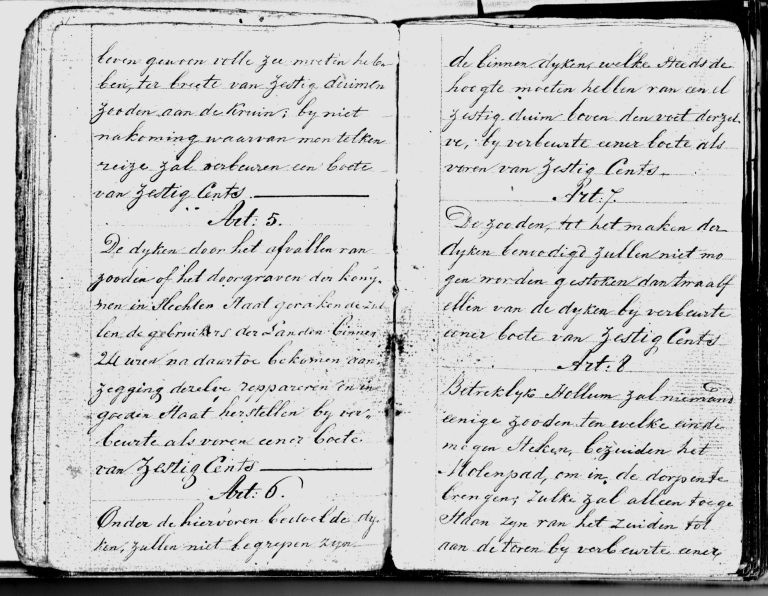 boven gewoon volle zee moeten heb-
ben, ter breete van Zestig duimen
zooden aan de kruin; by niet
nakoming waarvan men telken
reize zal verbeuren een boete
van Zestig Cents.
Art: 5.
De dyken door het afvallen van
zooden of het doorgraven der kony-
nen in Slechten Staat gerakende zul
len de gebruikers der Landen binnen
24 uren na daartoe bekomen aan-
zegging dezelve reppareren en in
goeden Staat herstellen by ver-
beurte als voren eener boete
van Zestig Cents
Art: 6.
Onder de hiervoren bedoelde dy-
ken, zullen niet begrepen zyn
de binnen dyken, welke Steeds de
hoogte moeten hebben van een el
zestig duim boven den voet derzel-
ve; by verbeurte eener boete als
voren van Zestig Cents.
Art. 7.
De zooden, tot het maken der
dyken benoodigd zullen niet mo
gen worden gestoken dan twaalf
ellen van de dyken by verbeurte
eener boete van Zestig Cents
Art. 8
Betreklyk Hollum zal niemand
eenige zooden ten welke einde
mogen Steken, bezuiden het
Molenpad, om in de dorpen te
brengen; zulke zal alleen toege
Staan zyn van het zuiden tot
aan de toren by verbeurte eener